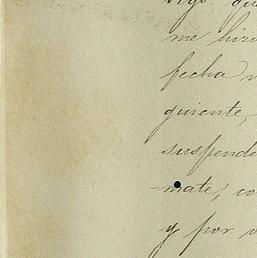 me hizo
fecha
quiente,
suspende
-mate, co
y por